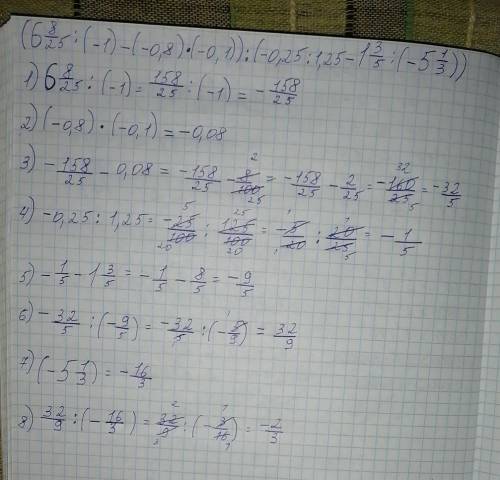 (6 8/25 : (-1) - (-0,8) · (-0,1)) : (-0,25 : 1,25 - 1 3/5 : (-5 1/3))
1) 6 8/25 : (-1) = 158/25 : (-1) = - 158/25
2) (-0,8) · (-0,1) = -0,08
3) - 158/25 - 0,08 = -158/25 - 8/100 = -158/25 - 2/25 = -160/25 = -32/5
4) -0,25 : 1,25 = -25/100 : 125/100 = -5/20 : 20/25 = - 1/5
5) - 1/5 - 1 3/5 = - 1/5 - 8/5 = -9/5
6) - 32/5 : (- 9/5) = -32/5 : (- 5/9) = 32/9
7) (-5 1/3) = -16/3
8) 32/9 : (- 16/3) = 32/9 : (- 3/16) = -2/3